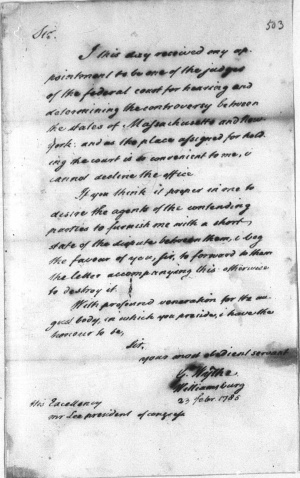 503
Sir.
I this day received my ap-
pointment to be one of the judges
of the federal court for hearing and
determining the controversy between
the states of Massachusetts and New
york: and as the place assigned for hold-
ing the court is so convenient to me, i
cannot decline the office
If you think it proper in me to
desire the agents of the contending
parties to furnish me with a short
state of the dispute between them, i beg
the favour of you, sir, to forward to them
the letter accompanying this: otherwise
to destroy it.
With profound veneration for the au-
gust body, in which you preside, i have the
honour to be,
Sir,
your most obedient servant
G. Wythe
Williamsburg
23 febr. 1785
His Excellency
mr Lee president of congress